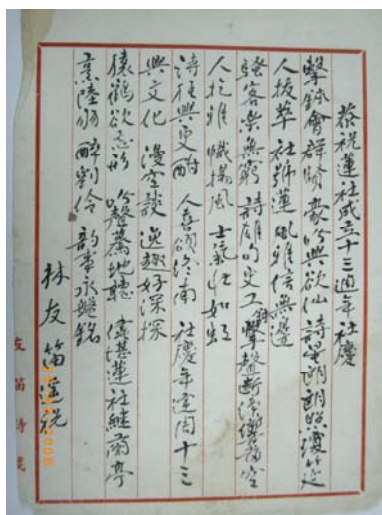 恭祝蓮社成立十三週年社慶
擊鉢會群賢 豪吟興欲仙 詩星朗朗照瓊筵
人拔萃 社號蓮 風雅信無邊
騷客樂無窮 詩雄句更工 鉢聲斷續響 空
人扢雅 幟揚風 士氣壯如虹
詩狂興更酣 人喜頌終南 社慶年運周十三
興文化 漫空談 逸趣好深探
猿鶴欲忘形 吟聲驀地聽 儘堪蓮社繼蘭亭
烹陸羽 醉劉伶 韻事永鐫銘
林友笛謹祝
友笛詩箋